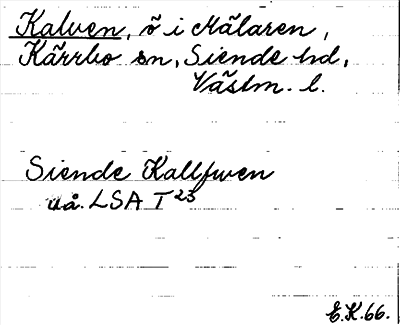 Kalven, ö i Mälaren,
Kärrbo sn, Siende hd,
Västm. l.
Siende Kallfwen
uå. LSA T 23
E.K. 66.